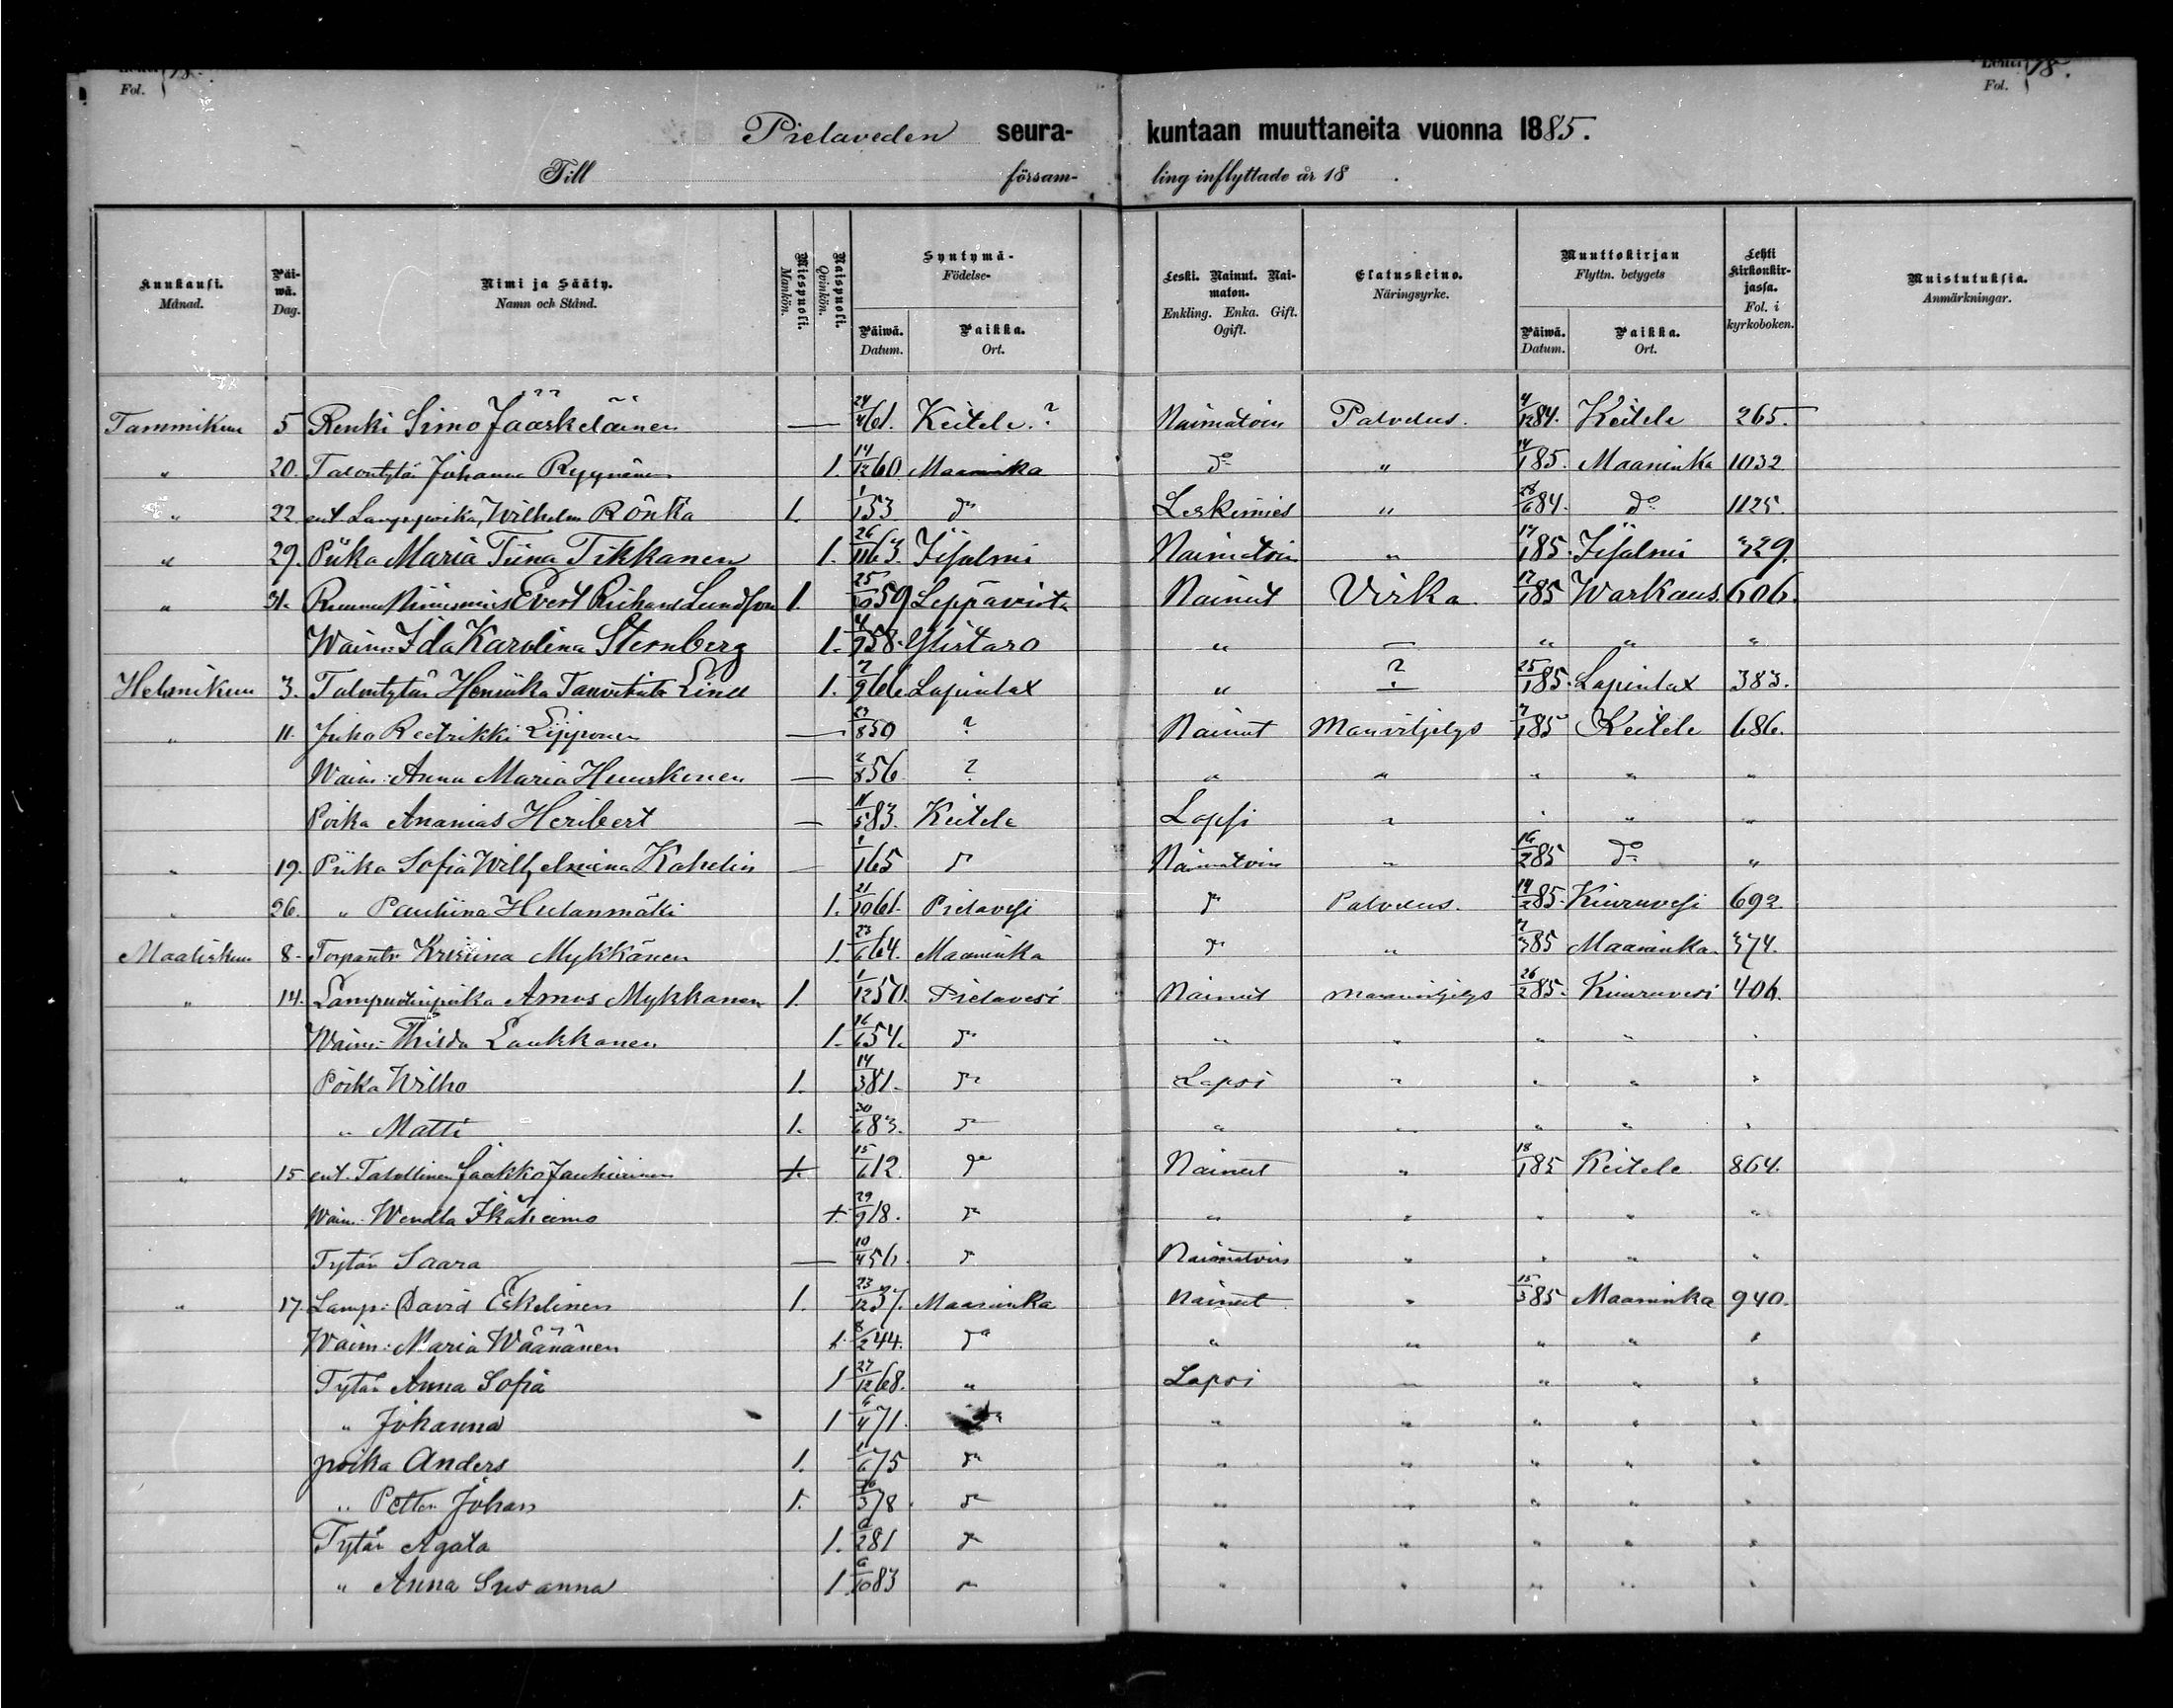 Fol. 18.
Fol. 18.
Pielaveden seura- kuntaan muuttaneita vuonna 1885.
Till församling inflyttade år 18 .
Kuukausi. Månad. Päiwä. Dag. Nimi ja Sääty. Namn och Stånd. Miespuoli. Mankön. Naispuoli. Qvinkön. Syntymä- Födelse- Päiwä. Datum. Paikka. Ort. Leski. Nainut. Naimaton. Enkling. Enka. Gift. Ogift. Elatuskeino. Näringsyrke. Muuttokirjan Flyttn. betygets Päiwä. Datum. Paikka. Ort. Lehti kirkonkirjassa. Fol. i kyrkoboken. Muistutuksia. Anmärkningar.
Tammikuu 5 Renki Simo Jääskeläinen — 24/4 61. Keitele. ? Naimatoin Palvelus. 4/12 84. Keitele 265.
" 20. Talontytär Johanna Ryynänen 1. 14/12 60. Maaninka do " 14/1 85. Maaninka 1032
" 22 ent. Lampuoti Wilhelm Rönkä 1. 1/1 53 do Leskimies " 28/6 84. do 1125.
" 29. Piika Maria Tiina Tikkanen 1. 26/11 63. Iisalmi Naimatoin " 17/1 85. Iisalmi 329.
" 31. Evert Richard 1. 25/10 59 Leppävirta Nainut Virka 17/1 85 Warkaus. 606.
Waim: Ida Karolina Sternberg 1. 4/9 58. Ylistaro " — " " "
Helmikuu 3. Talontytär Henrika 1. 7/9 66. Lapinlax " ? 25/1 85. Lapinlax 383.
" 11. Juho Reetrikki Lipponen — 23/8 50 ? Nainut Manviljelys 7/1 85 Keitele 686.
Waim: Anna Maria Huuskonen — 2/8 56 ? " " " " "
Poika Ananias Heribert — 11/5 83. Keitele Lapsi " " " "
" 19. Piika Sofia Wilhelmina Kahelin — 1/1 65 do Naimatoin " 16/2 85 do "
" 26. " Pauliina Hulanmäki 1. 21/10 61. Pielavesi do Palvelus. 14/2 85. Kiuruvesi 692
Maaliskuu 8. Torpantr Kristiina Mykkänen 1. 23/6 64. Maaninka do " 7/3 85 Maaninka. 374.
" 14. Lampuotinpoika Amos Mykkänen 1. 1/12 50. Pielavesi Nainut Maanviljelys 26/2 85. Kiuruvesi 406.
Waim: Thilda Laukkanen 1. 16/6 54. do " " " " "
Poika Wilho 1. 14/3 81. do Lapsi " " " "
" Matti 1. 30/6 83. do " " " " "
" 15 ent. Talollinen Jaakko Jauhiainen 1. 15/6 12. do Nainut " 18/1 85 Keitele 864.
Waim. Wendla Ikäheimo 1. 29/9 18. do " " " " "
Tytär Saara — 10/4 56. do Naimatoin " " " "
" 17. Lamp: David Eskelinen 1. 23/12 37. Maaninka Nainut " 15/3 85 Maaninka 940.
Waim: Maria Wäänänen 1. 8/2 44. do " " " " "
Tytär Anna Sofia 1 27/12 68. " Lapsi " " " "
" Johanna 1 6/4 71. " " " " "
poika Anders 1. 6 75 do " " " " "
" Petter Johan 1. 3 78. do " " " " "
Tytär Agata 1. 2 81 do " " " " "
" Anna Susanna 1. 6/10 83 do " " " " "